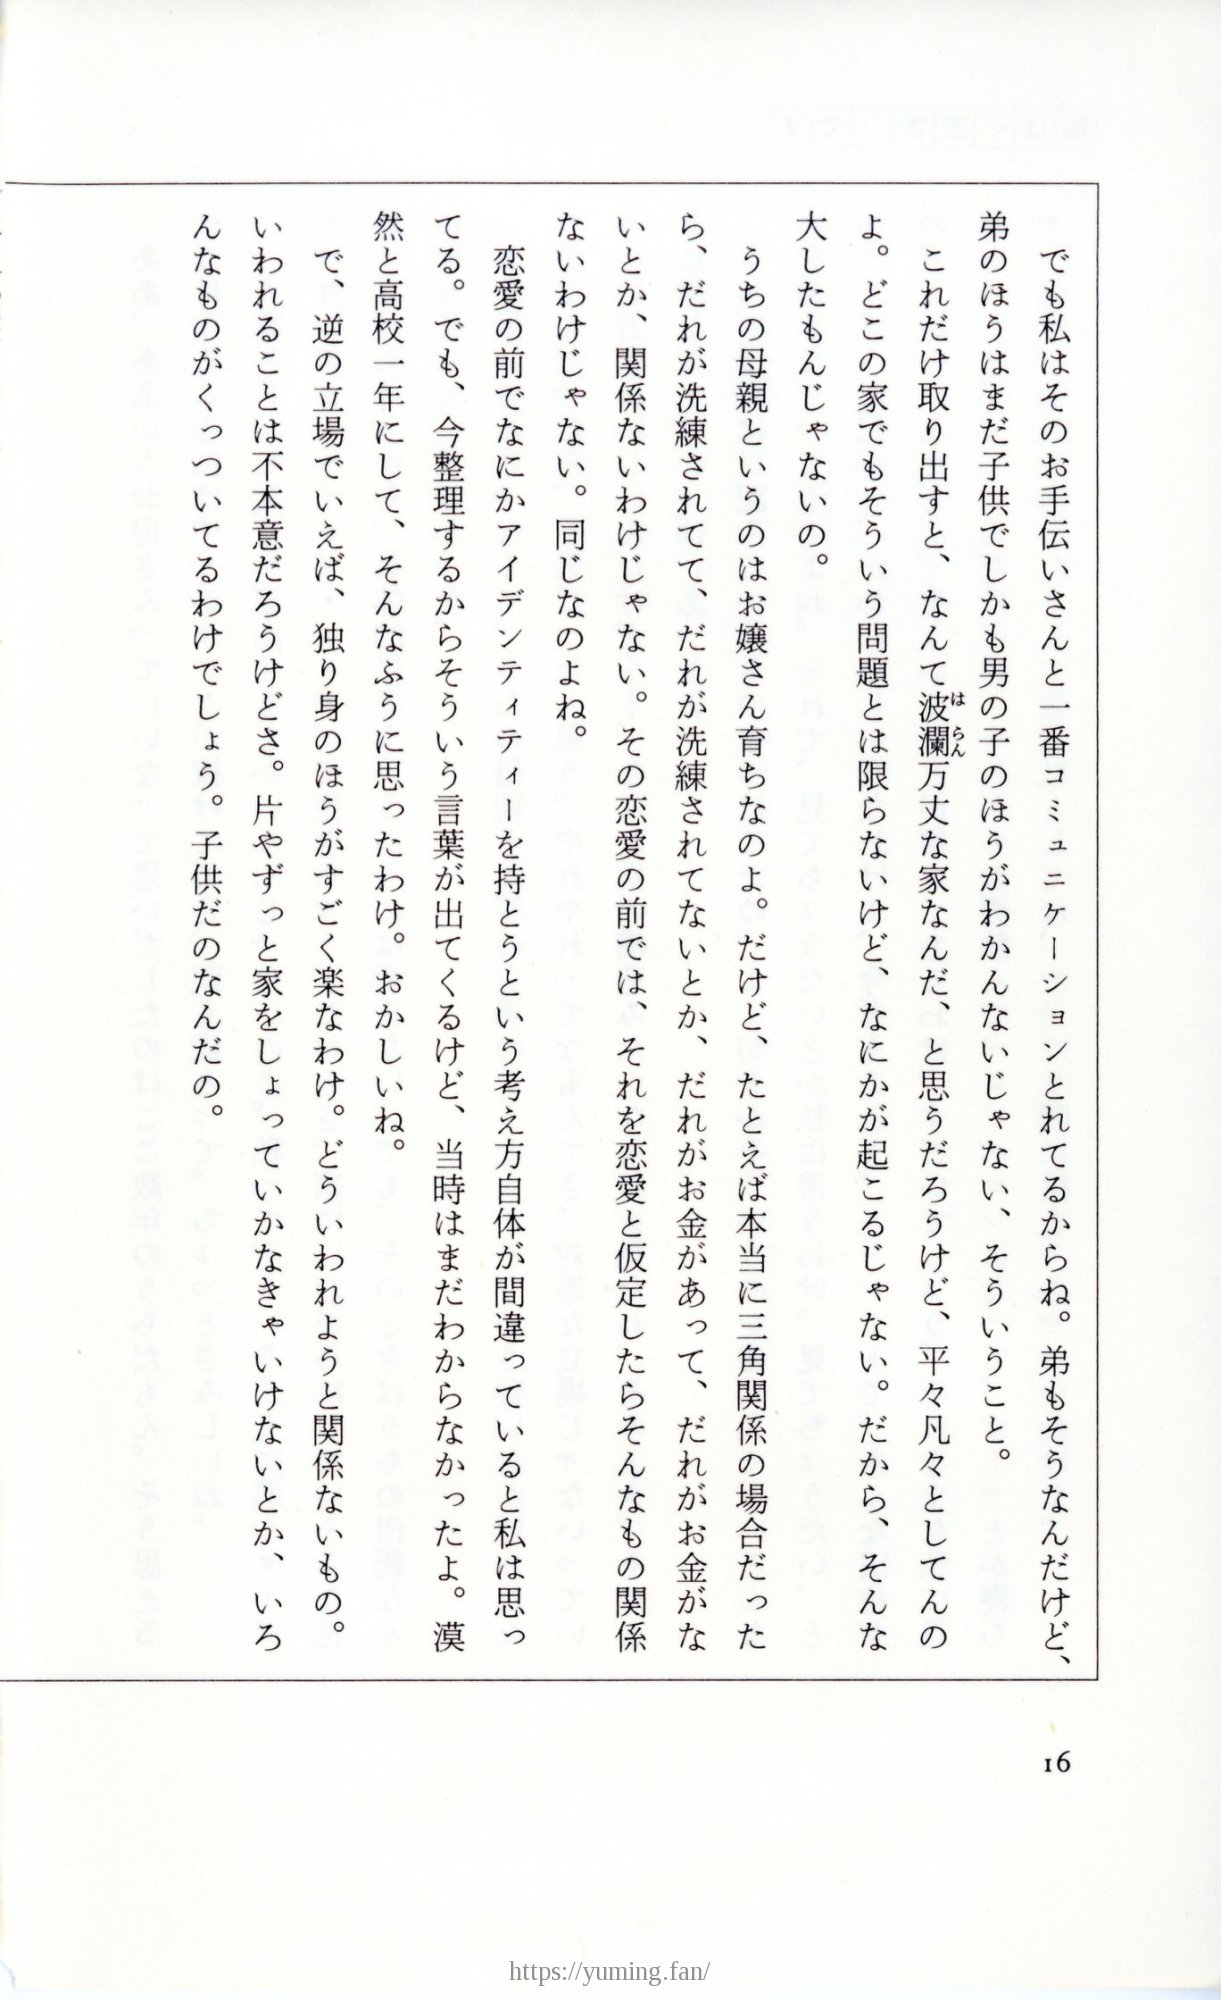 でも私はそのお手伝いさんと一番コミュニケーションとれてるからね。弟もそうなんだけど、
弟のほうはまだ子供でしかも男の子のほうがわかんないじゃない、そういうこと。
これだけ取り出すと、なんて波瀾万丈な家なんだ、と思うだろうけど、平々凡々としてんの
はらん
よ。どこの家でもそういう問題とは限らないけど、なにかが起こるじゃない。だから、そんな
大したもんじゃないの。
うちの母親というのはお嬢さん育ちなのよ。だけど、たとえば本当に三角関係の場合だった
ら、だれが洗練されてて、だれが洗練されてないとか、だれがお金があって、だれがお金がな
いとか、関係ないわけじゃない。その恋愛の前では、それを恋愛と仮定したらそんなもの関係
ないわけじゃない。同じなのよね。
恋愛の前でなにかアイデンティティーを持とうという考え方自体が間違っていると私は思っ
てる。でも、今整理するからそういう言葉が出てくるけど、当時はまだわからなかったよ。漠
然と高校一年にして、そんなふうに思ったわけ。おかしいね。
で、逆の立場でいえば、独り身のほうがすごく楽なわけ。どういわれようと関係ないもの。
いわれることは不本意だろうけどさ。片やずっと家をしょっていかなきゃいけないとか、いろ
んなものがくっついてるわけでしょう。子供だのなんだの。
16
https://yuming.fan/